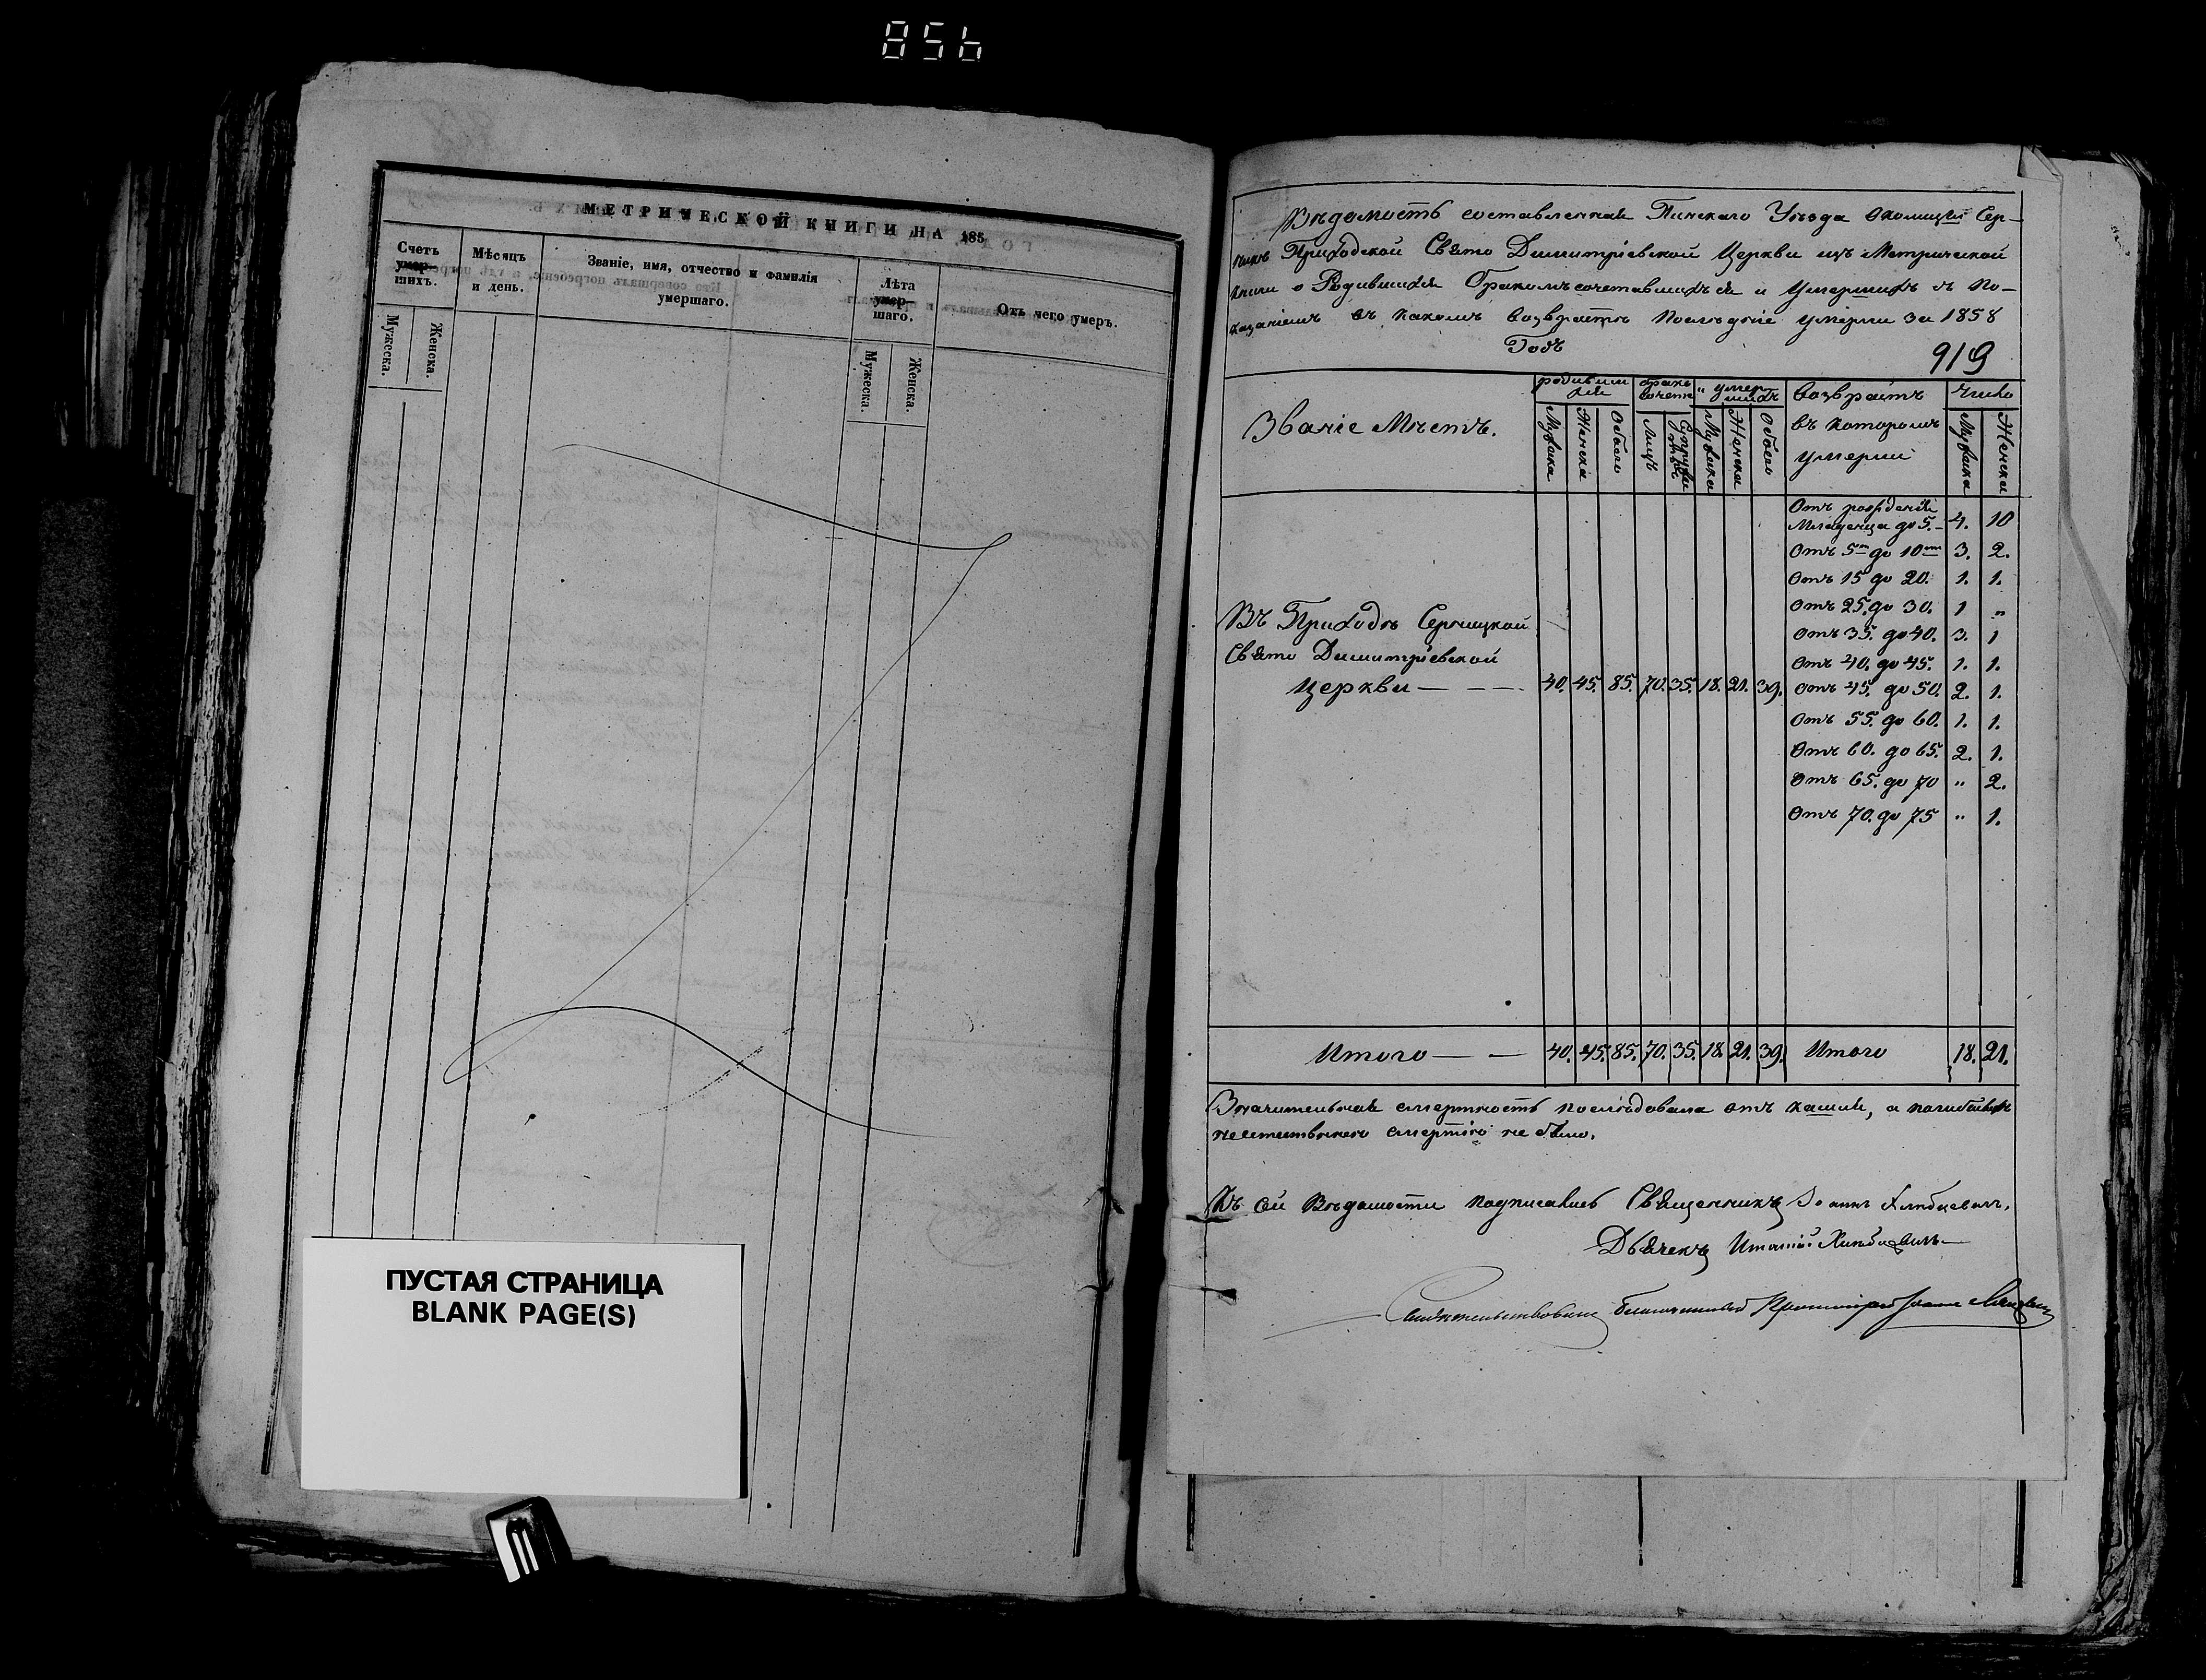 856
МЕТРИЧЕСКОЙ КНИГИ НА 185
Счетъ умер-шихъ.
Мужеска.
Женска.
Мѣсяцъ и день.
Званіе, имя, отчество и фамилія умершаго.
Лѣта умер-шаго.
Мужеска.
Женска.
Отъ чего умеръ.
ПУСТАЯ СТРАНИЦА
BLANK PAGE(S)
Вѣдомость составленная Пинскаго Уѣзда Сер-
Приходской Свято Димитріевской Церкви изъ Метрической
Книги о Родившихся Бракомъ сочетавшихъся и Умершихъ съ по-
казаніемъ въ какомъ возврастѣ послѣдніе умерли за 1858
Годъ
919
Званіе Мѣстъ.
родивших ся
Мужска
Женска
Обоего
бракъ сочет
Лицъ
Супруж
умер шихъ
Мужска
Женска
Обоего
Возврастъ въ которомъ умерли
Число
Мужска
Женска
Отъ рожденія
Младенца до 5. - 4. 10
Отъ 5 до 10 3. 2.
Отъ 15 до 20. 1. 1.
Отъ 25. до 30. 1 "
Отъ 35. до 40. 3. 1
Отъ 40. до 45. 1. 1.
Отъ 45. до 50. 2. 1.
Отъ 55. до 60. 1. 1.
Отъ 60. до 65. 2. 1.
Отъ 65. до 70 " 2.
Отъ 70. до 75 " 1.
Въ Приходѣ Серницкой
Свято Димитріевской
Церкви — — — 40. 45. 85. 70. 35. 18. 21. 39.
Итого — — 40. 45. 85. 70. 35. 18. 21. 39. Итого 18. 21.
Значительная смертность послѣдовала отъ кашля, а погибшихъ
неестественною смертію не было.
Къ сей Вѣдомости подписались Священникъ Іоаннъ
Дьячекъ
Свидѣтельствовалъ благочинный